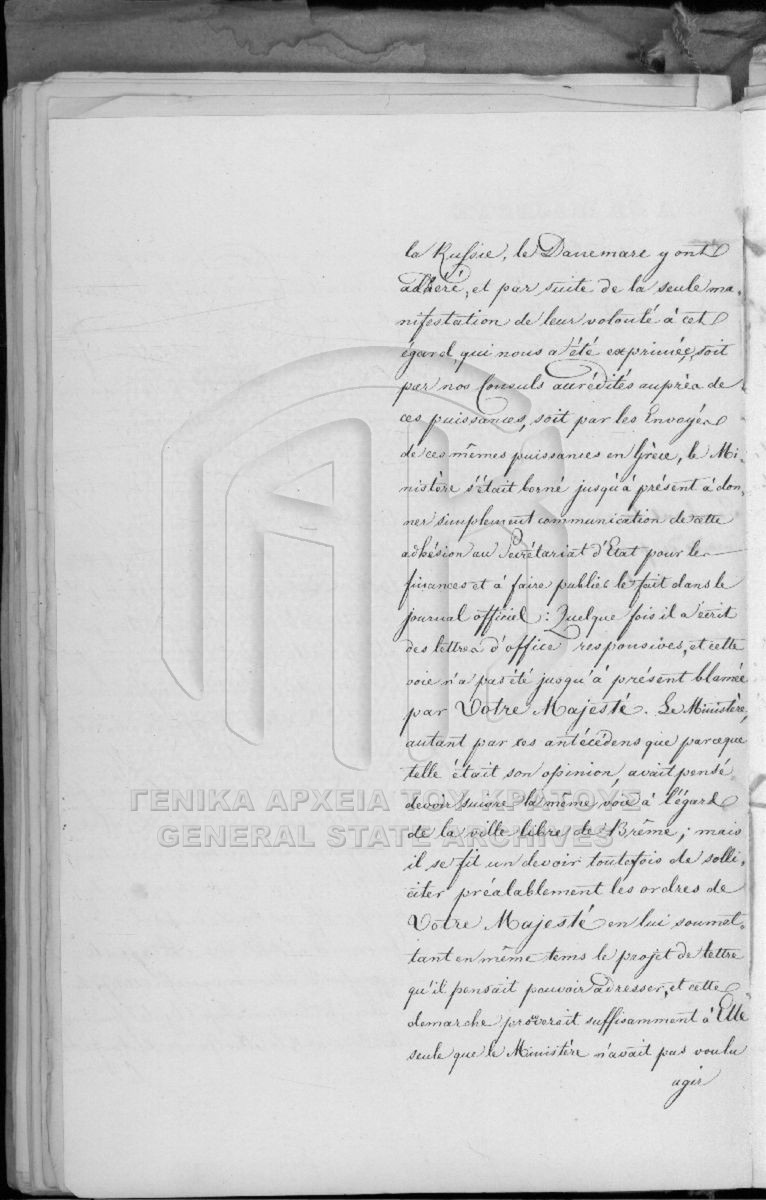 la Russie, le Danemarc y ont
adhéré, et par suite de la seule ma-
nifestation de leur volonté à cet
égard, qui nous a été exprimée, soit
par nos Consuls accrédités auprès de
ces puissances, soit par les Envoyés
de ces mêmes puissances en Grèce, le Mi-
nistère s'était borné jusqu'à présent à don-
ner simplement communication de cette
adhésion au Secrétariat d'Etat pour les
finances et à faire publier le fait dans le
journal officiel: Quelque fois il a écrit
des lettres d'office responsives, et cette
voie n'a pas été jusqu'à présent blamée
par Votre Majesté. Le Ministère,
autant par ces antécédens que parceque
telle était son opinion, avait pensé
devoir suivre la même voie à l'égard
de la ville libre de Brême; mais
il se fit un devoir toutefois de solli-
citer préalablement les ordres de
Votre Majesté en lui soumet-
tant en même tems le projet de lettre
qu'il pensait pouvoir adresser, et cette
demarche prouverait suffisamment à Elle
seule que le Ministère n'avait pas voulu
agir
ΓΕΝΙΚΑ ΑΡΧΕΙΑ ΤΟΥ ΚΡΑΤΟΥΣ
GENERAL STATE ARCHIVES